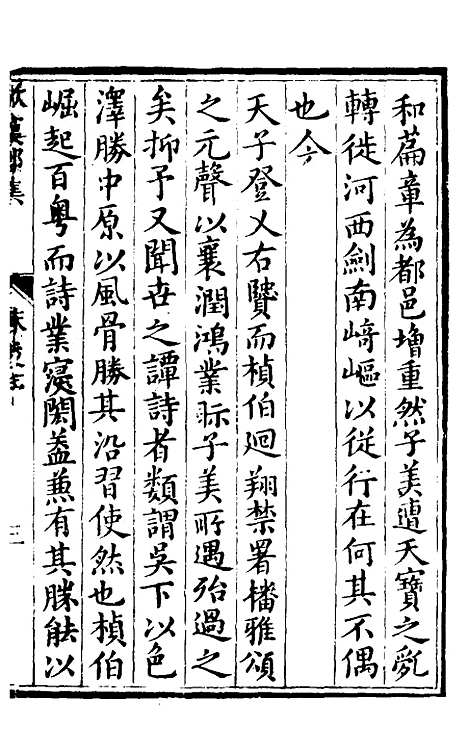 和篇章為都邑增重然子美遭天寶之亂
轉徙河西劍南﨑嶇以從行在何其不偶
也今
天子登乂右賢而楨伯迴翔禁署播雅頌
之元聲以襄潤鴻業眎子美所遇殆過之
矣抑予又聞世之譚詩者類謂吳下以色
澤勝中原以風骨勝其沿習使然也楨伯
崛起百粵而詩業寔閎蓋兼有其勝能以